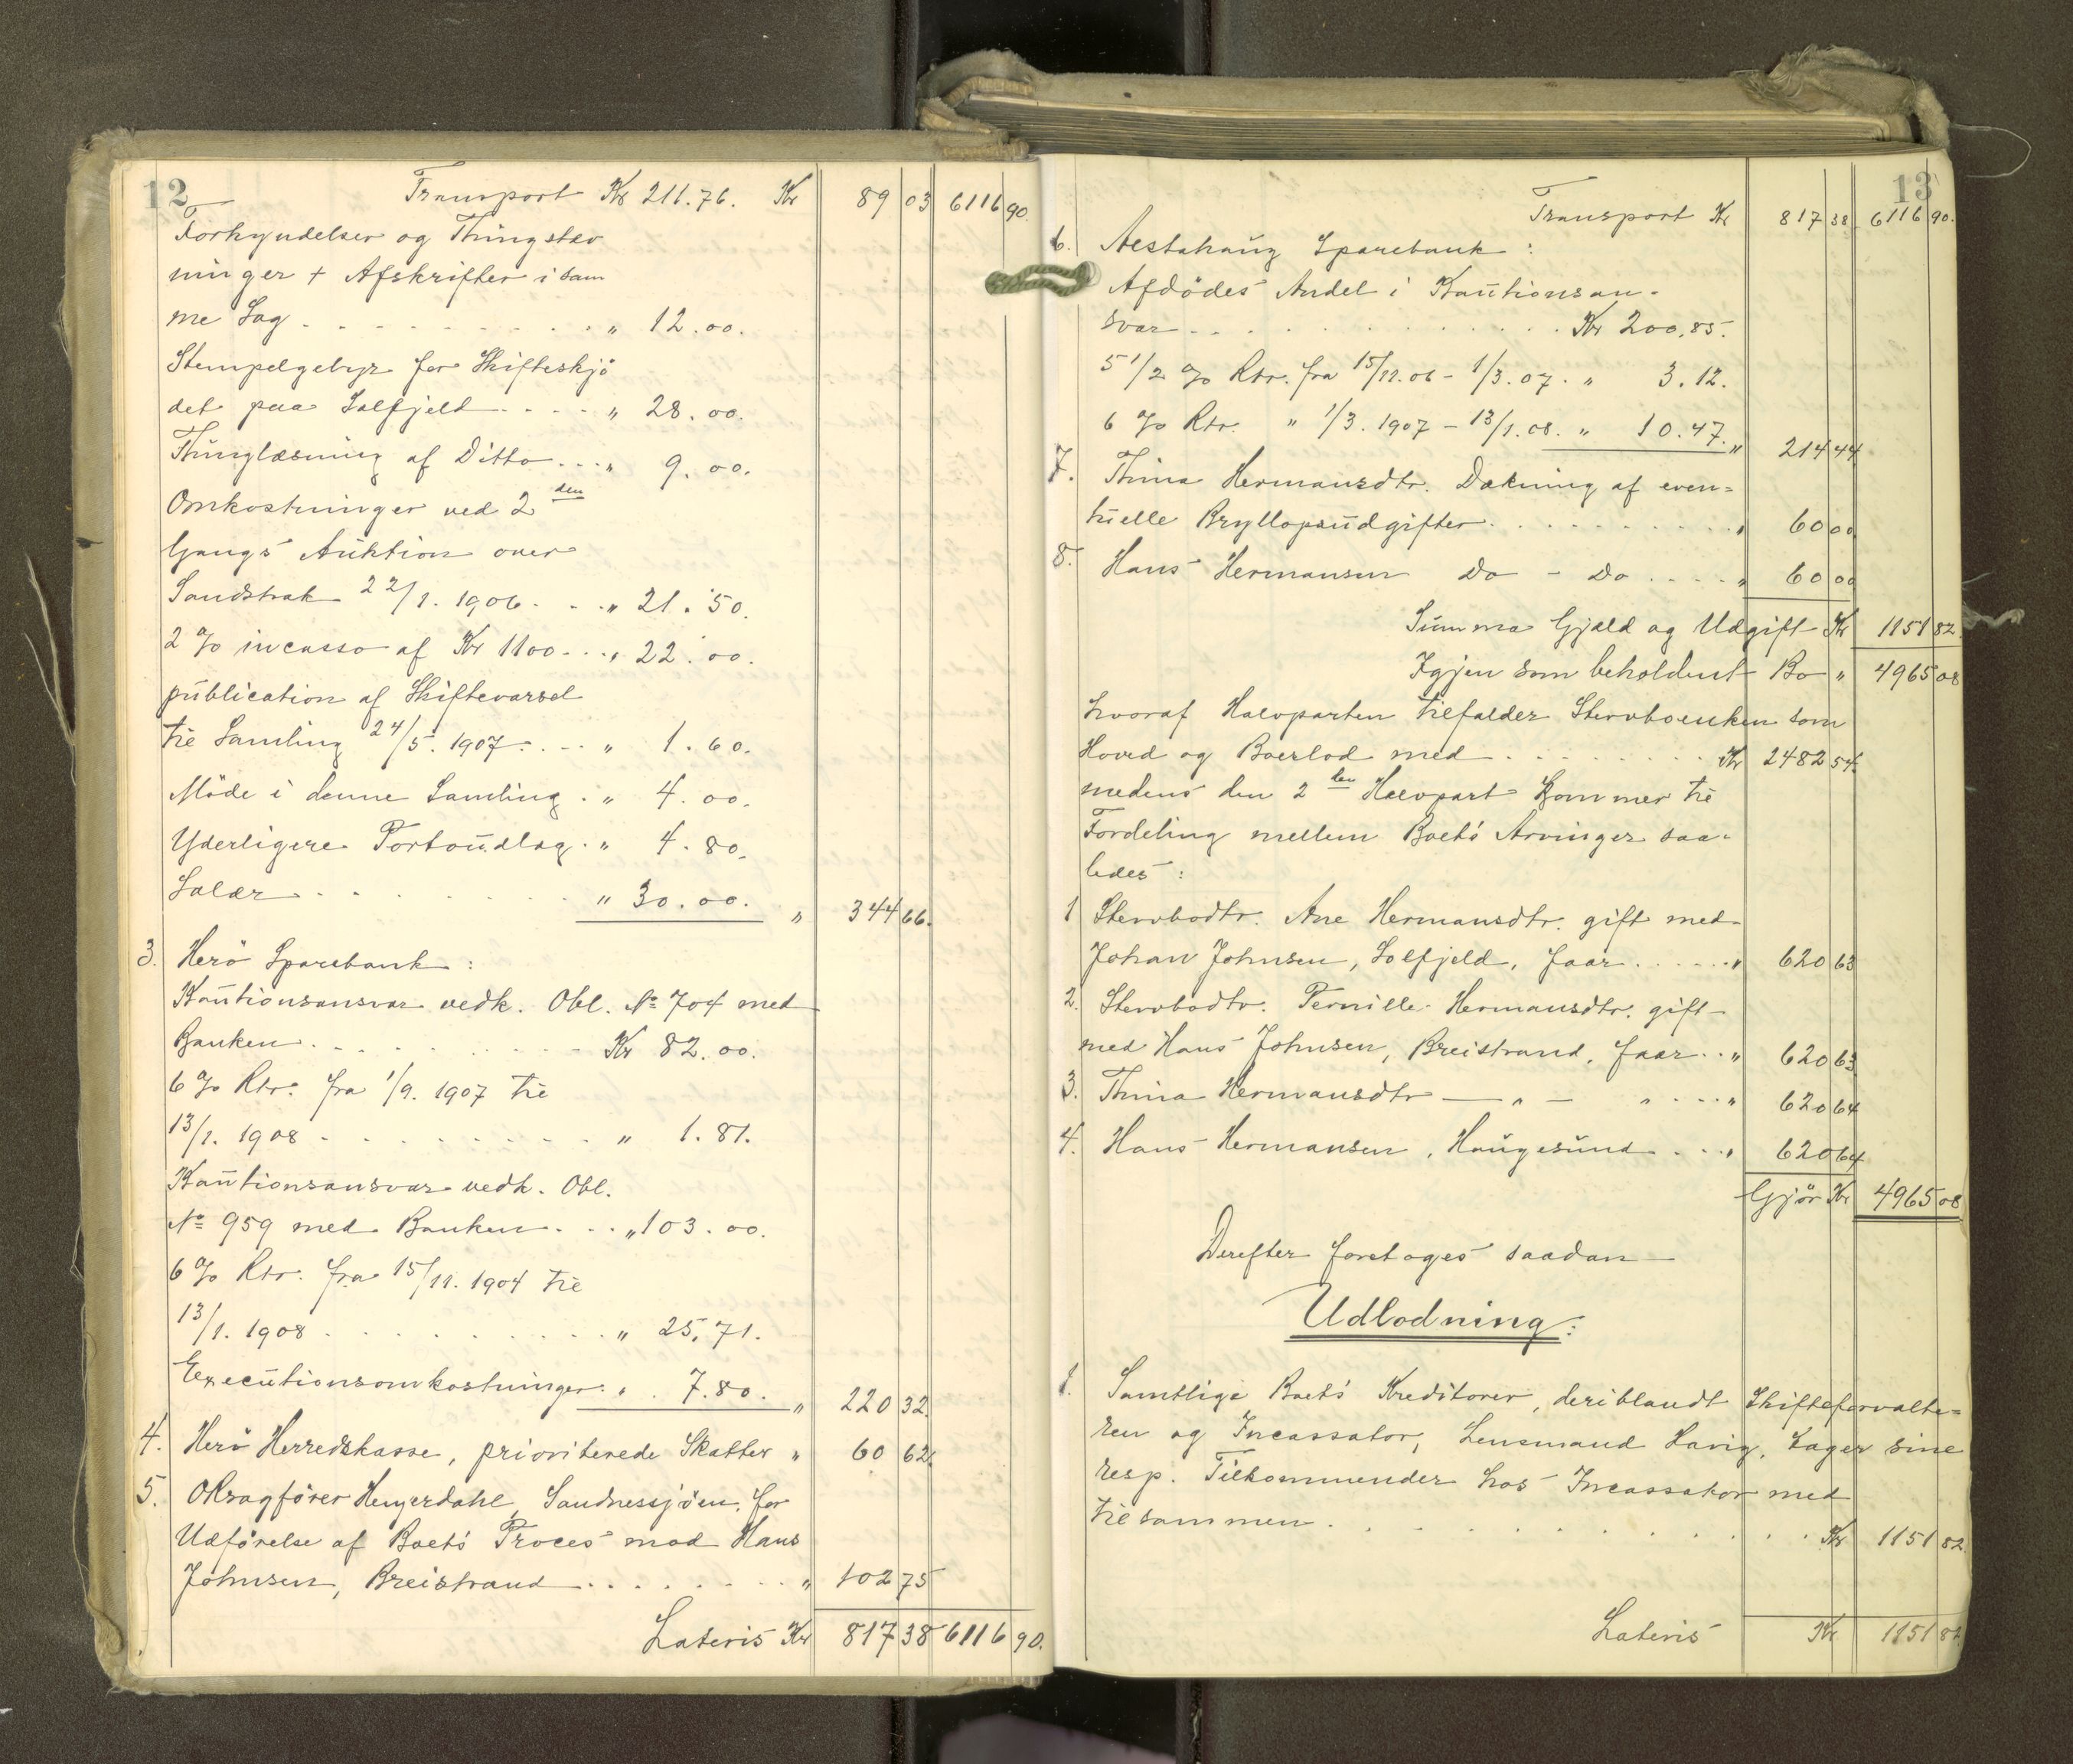 12
Transport Kr 211.76. Kr 89 03 6116 90.
Forkyndelser og Thingstev
ninger + Afskrifter i sam
me Sag . . . . " 12.00.
Stempelgebyr for Skifteskjö
det paa Solfjeld . . . . " 28.00.
Thinglæsning af Ditto . . . " 9.00.
Omkostninger ved 2den
Gangs Auktion over
Sandstrak 22/1. 1906 . . . " 21.50.
2 % incasso af Kr 1100 . . . " 22.00.
publication af Skiftevarsel
til Samling 24/5. 1907 . . . " 1.60.
Möde i denne Samling . " 4.00.
Yderligere Portoudlæg . " 4.80.
Salær . . . . " 30.00. " 344 66.
3. Herö Sparebank :
Kautionsansvar vedk. Obl. № 704 med
Banken . . . . Kr 82.00.
6 % Rtr. fra 1/9. 1907 til
13/1. 1908 . . . . " 1.81.
Kautionsansvar vedk. Obl.
№ 959 med Banken . . . " 103.00.
6 % Rtr. fra 15/11. 1904 til
13/1. 1908 . . . . " 25.71.
Executionsomkostninger . " 7.80. " 220 32.
4. Herö Herredskasse, prioriterede Skatter " 60 62.
5. ORsagförer Heyerdahl, Sandnessjöen, for
Udförelse af Boets Proces mod Hans
Johnsen, Breistrand . . . . " 102 75
Lateris Kr 817 38 6116 90.
13
Transport Kr 817 38 6116 90.
6. Alstahaug Sparebank :
Afdödes Andel i Kautionsan-
svar . . . . Kr 200.85.
5 1/2 % Rtr. fra 15/11.06 - 1/3.07. " 3.12.
6 % Rtr. " 1/3. 1907 - 13/1.08. " 10.47. " 214 44
7. Thina Hermansdtr. Dækning af even-
tuelle Bryllupsudgifter . . . . " 60 00
8. Hans Hermansen Do - Do . . . . " 60 00
Summa Gjæld og Udgift Kr 1151 82.
Igjen som beholdent Bo " 4965 08
hvoraf Halvparten tilfalder Stervboenken som
Hoved og Boeslod med . . . . Kr 2482 54.
medens den 2den Halvpart kommer til
Fordeling mellem Boets Arvinger saa-
ledes :
1 Stervbodtr. Ane Hermansdtr. gift med
Johan Johnsen, Solfjeld, faar . . . . " 620 63
2. Stervbodtr. Pernille Hermansdtr. gift
med Hans Johnsen, Breistrand, faar . . " 620 63
3. Thina Hermansdtr — " — " . . . . " 620 64
4. Hans Hermansen, Haugesund . . . " 620 64
Gjör Kr 4965 08
Derefter foretages saadan
Udlodning:
1. Samtlige Boets Kreditorer, deriblandt Skifteforvalte-
ren og Incassator, Lensmand Havig, tager sine
resp. Tilkommender hos Incassator med
tilsammen . . . . Kr 1151 82.
Lateris Kr 1151 82